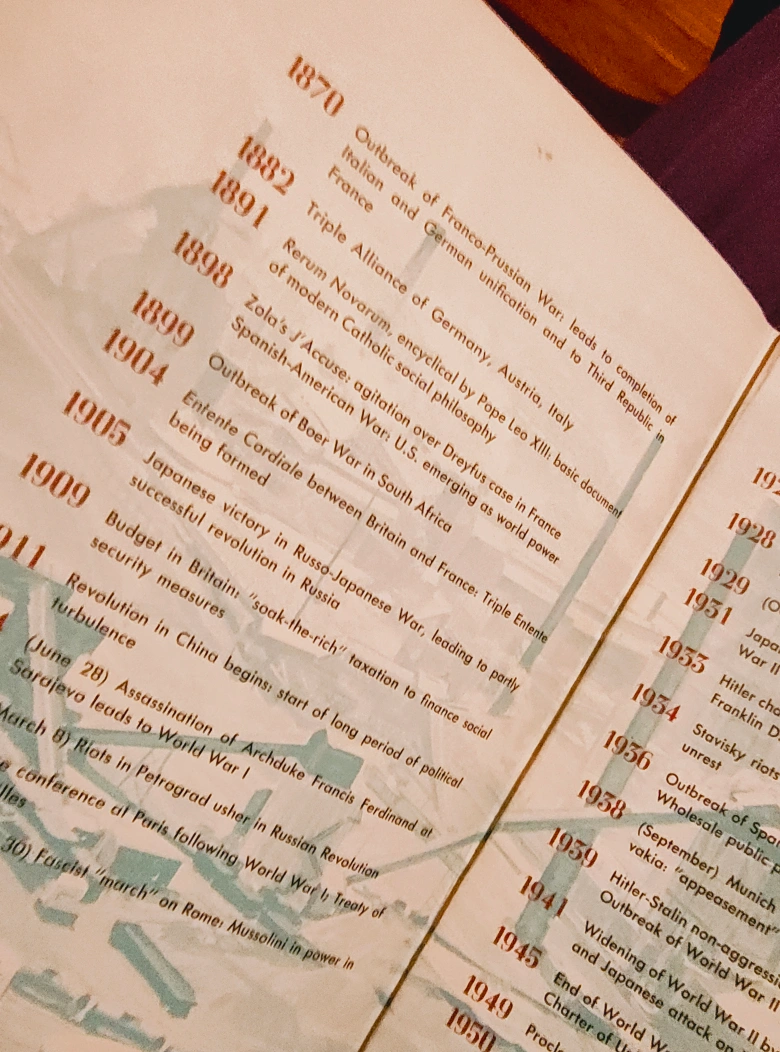 1870
Outbreak of Franco-Prussian War: leads to completion of
Italian and German unification and to Third Republic in
France
1882
Triple Alliance of Germany, Austria, Italy
1891
Rerum Novarum, encyclical by Pope Leo XIII: basic document
of modern Catholic social philosophy
1898
Zola's J'Accuse: agitation over Dreyfus case in France
Spanish-American War: U.S. emerging as world power
1899
Outbreak of Boer War in South Africa
1904
Entente Cordiale between Britain and France: Triple Entente
being formed
1905
Japanese victory in Russo-Japanese War, leading to partly
successful revolution in Russia
1909
Budget in Britain: "soak-the-rich" taxation to finance social
security measures
911
Revolution in China begins; start of long period of political
turbulence
(June 28) Assassination of Archduke Francis Ferdinand at
Sarajevo leads to World War I
March 8) Riots in Petrograd usher in Russian Revolution
conference at Paris following World War I; Treaty of
lles
30) Fascist "march" on Rome; Mussolini in power in
1928
1929
(O
1931
Japa
War
1933
Hitler cha
Franklin D.
1934
Stavisky riots
unrest
1936
Outbreak of Span
Wholesale public p
1938
(September) Munich
vakia: "appeasement"
1939
Hitler-Stalin non-aggressi
Outbreak of World War II
1941
Widening of World War II by
and Japanese attack on
1945
End of World W
Charter of U
1949
Procl
1950